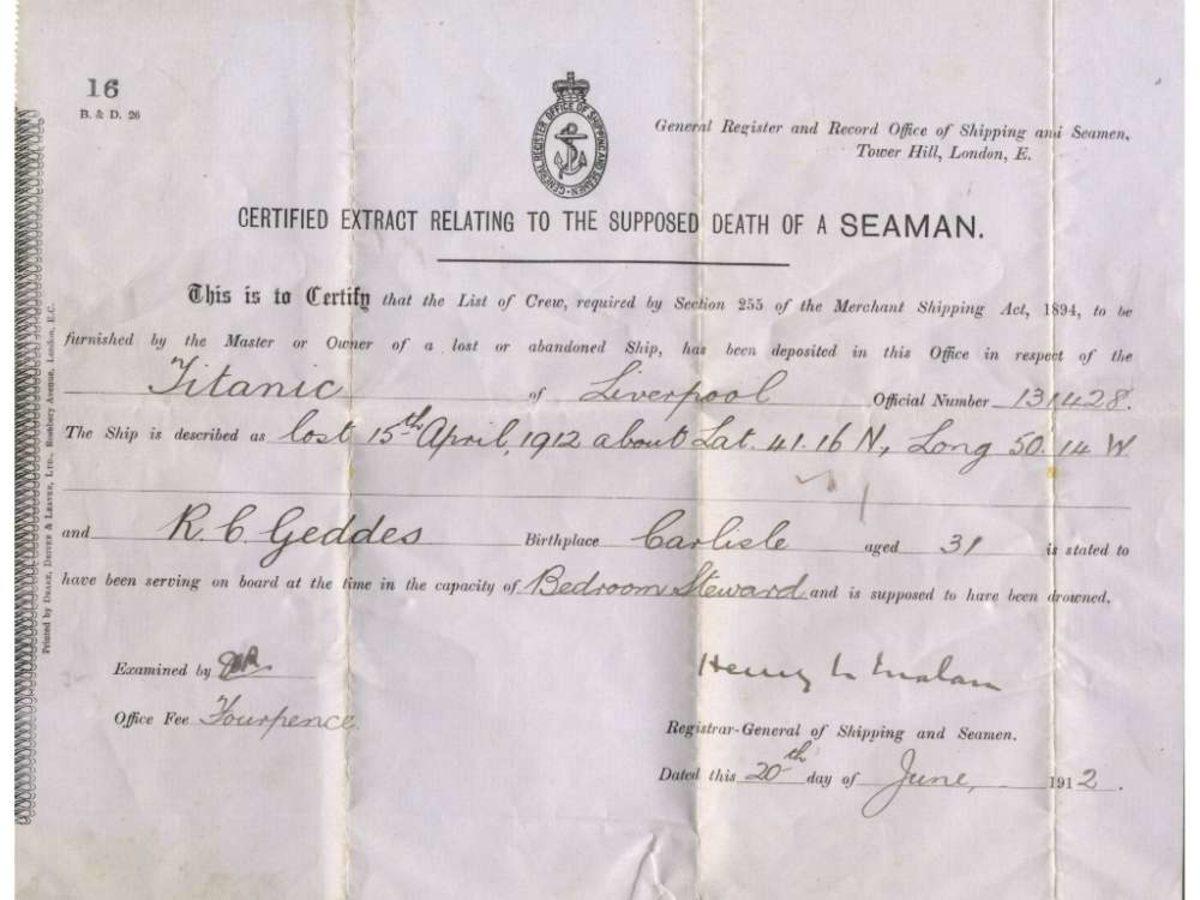 16
B. & D. 26
GENERAL REGISTER OFFICE OF SHIPPING AND SEAMEN
General Register and Record Office of Shipping and Seamen,
Tower Hill, London, E.
CERTIFIED EXTRACT RELATING TO THE SUPPOSED DEATH OF A SEAMAN.
This is to Certify that the List of Crew, required by Section 255 of the Merchant Shipping Act, 1894, to be
furnished by the Master or Owner of a lost or abandoned Ship, has been deposited in this Office in respect of the
Titanic of Liverpool Official Number 131428.
The Ship is described as lost 15th April, 1912 about Lat. 41.16 N, Long 50.14 W
and R. C. Geddes Birthplace Carlisle aged 31 is stated to
have been serving on board at the time in the capacity of Bedroom Steward and is supposed to have been drowned.
Examined by
Henry N Malan
Office Fee Fourpence.
Registrar-General of Shipping and Seamen.
Dated this 20th day of June, 1912.
Printed by Drake, Driver & Leaver, Ltd., Rosebery Avenue, London, E.C.